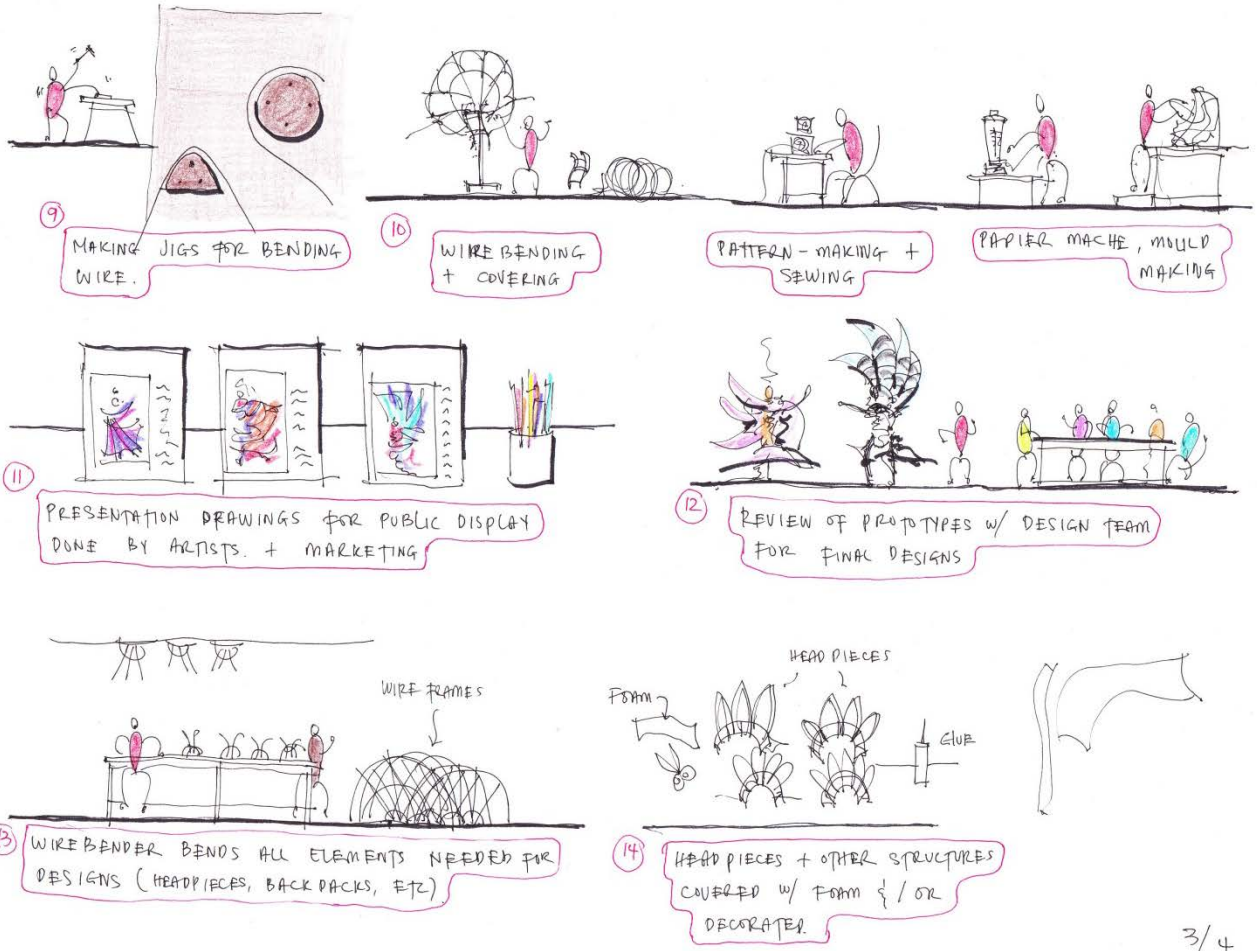 9
MAKING JIGS FOR BENDING
WIRE.
10
WIRE BENDING
+ COVERING
PATTERN-MAKING +
SEWING
PAPIER MACHE, MOULD
MAKING
11
PRESENTATION DRAWINGS FOR PUBLIC DISPLAY
DONE BY ARTISTS. + MARKETING
12
REVIEW OF PROTOTYPES W/ DESIGN TEAM
FOR FINAL DESIGNS
WIRE FRAMES
13
WIREBENDER BENDS ALL ELEMENTS NEEDED FOR
DESIGNS (HEADPIECES, BACKPACKS, ETC)
HEAD PIECES
FOAM
GLUE
14
HEADPIECES + OTHER STRUCTURES
COVERED W/ FOAM & / OR
DECORATED.
3/4